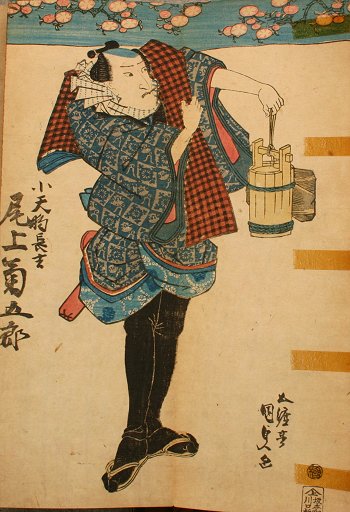 小天狗長吉
尾上菊五郎
五渡亭
国貞画